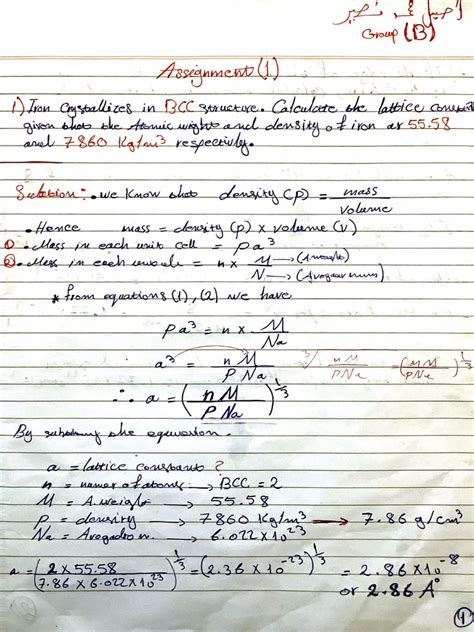 Group (B)
Assignment (1)
1) Iron Crystallizes in BCC structure. Calculate the lattice constant
given that the Atomic wight and density of iron ar 55.58
and 7860 Kg/m³ respectivly.
Solution:. we know that density (ρ) = mass / volume
. Hence mass = density (ρ) x volume (v)
① . Mass in each unit cell = ρa³
② . Mass in each = n x M → (A weight) / N → (Avogadro num)
* from equations (1), (2) we have
ρa³ = n x M / Na
a³ = nM / ρNa ∛ nM / ρNa = (nM / ρNa)^1/3
∴ a = (nM / ρNa)^1/3
By the equation.
a = lattice constant ?
n = of atoms → BCC = 2
M = A.weight → 55.58
ρ = density → 7860 Kg/m³ → 7.86 g/cm³
Na = Avogadro n. → 6.022 x 10^23
a = (2 x 55.58 / 7.86 x 6.022 x 10^23)^1/3 = (2.36 x 10^-23)^1/3 = 2.86 x 10^-8
or 2.86 A°
1